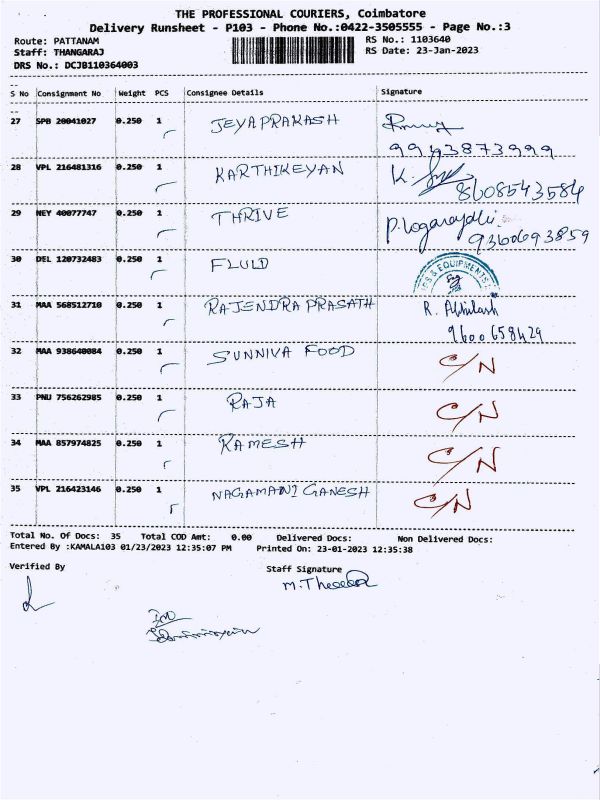 THE PROFESSIONAL COURIERS, Coimbatore
Delivery Runsheet - P103 - Phone No.:0422-3505555 - Page No.:3
Route: PATTANAM
RS No.: 1103640
Staff: THANGARAJ
RS Date: 23-Jan-2023
DRS No.: DCJB110364003
S No Consignment No Weight PCS Consignee Details Signature
27 SPB 20041027 0.250 1 JEYAPRAKASH
9943873999
28 VPL 216481316 0.250 1 KARTHIKEYAN K.
8608543584
29 NEY 40077747 0.250 1 THRIVE P.
9360693859
30 DEL 120732483 0.250 1 FLULD & EQUIPMENTS
31 MAA 568512710 0.250 1 RAJENDRA PRASATH R. Abhilash
9600658429
32 MAA 938640084 0.250 1 SUNNIVA FOOD C/N
33 PNU 756262985 0.250 1 RAJA C/N
34 MAA 857974825 0.250 1 RAMESH C/N
35 VPL 216423146 0.250 1 NAGAMANI GANESH C/N
Total No. Of Docs: 35 Total COD Amt: 0.00 Delivered Docs: Non Delivered Docs:
Entered By :KAMALA103 01/23/2023 12:35:07 PM Printed On: 23-01-2023 12:35:38
Verified By Staff Signature